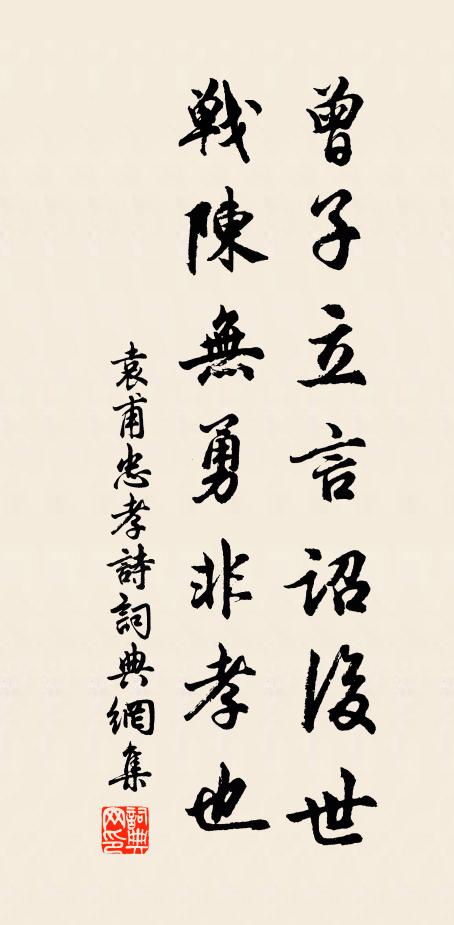 曾子立言詔後世
戰陳無勇非孝也
袁甫忠孝詩詞典網集
詞典網印